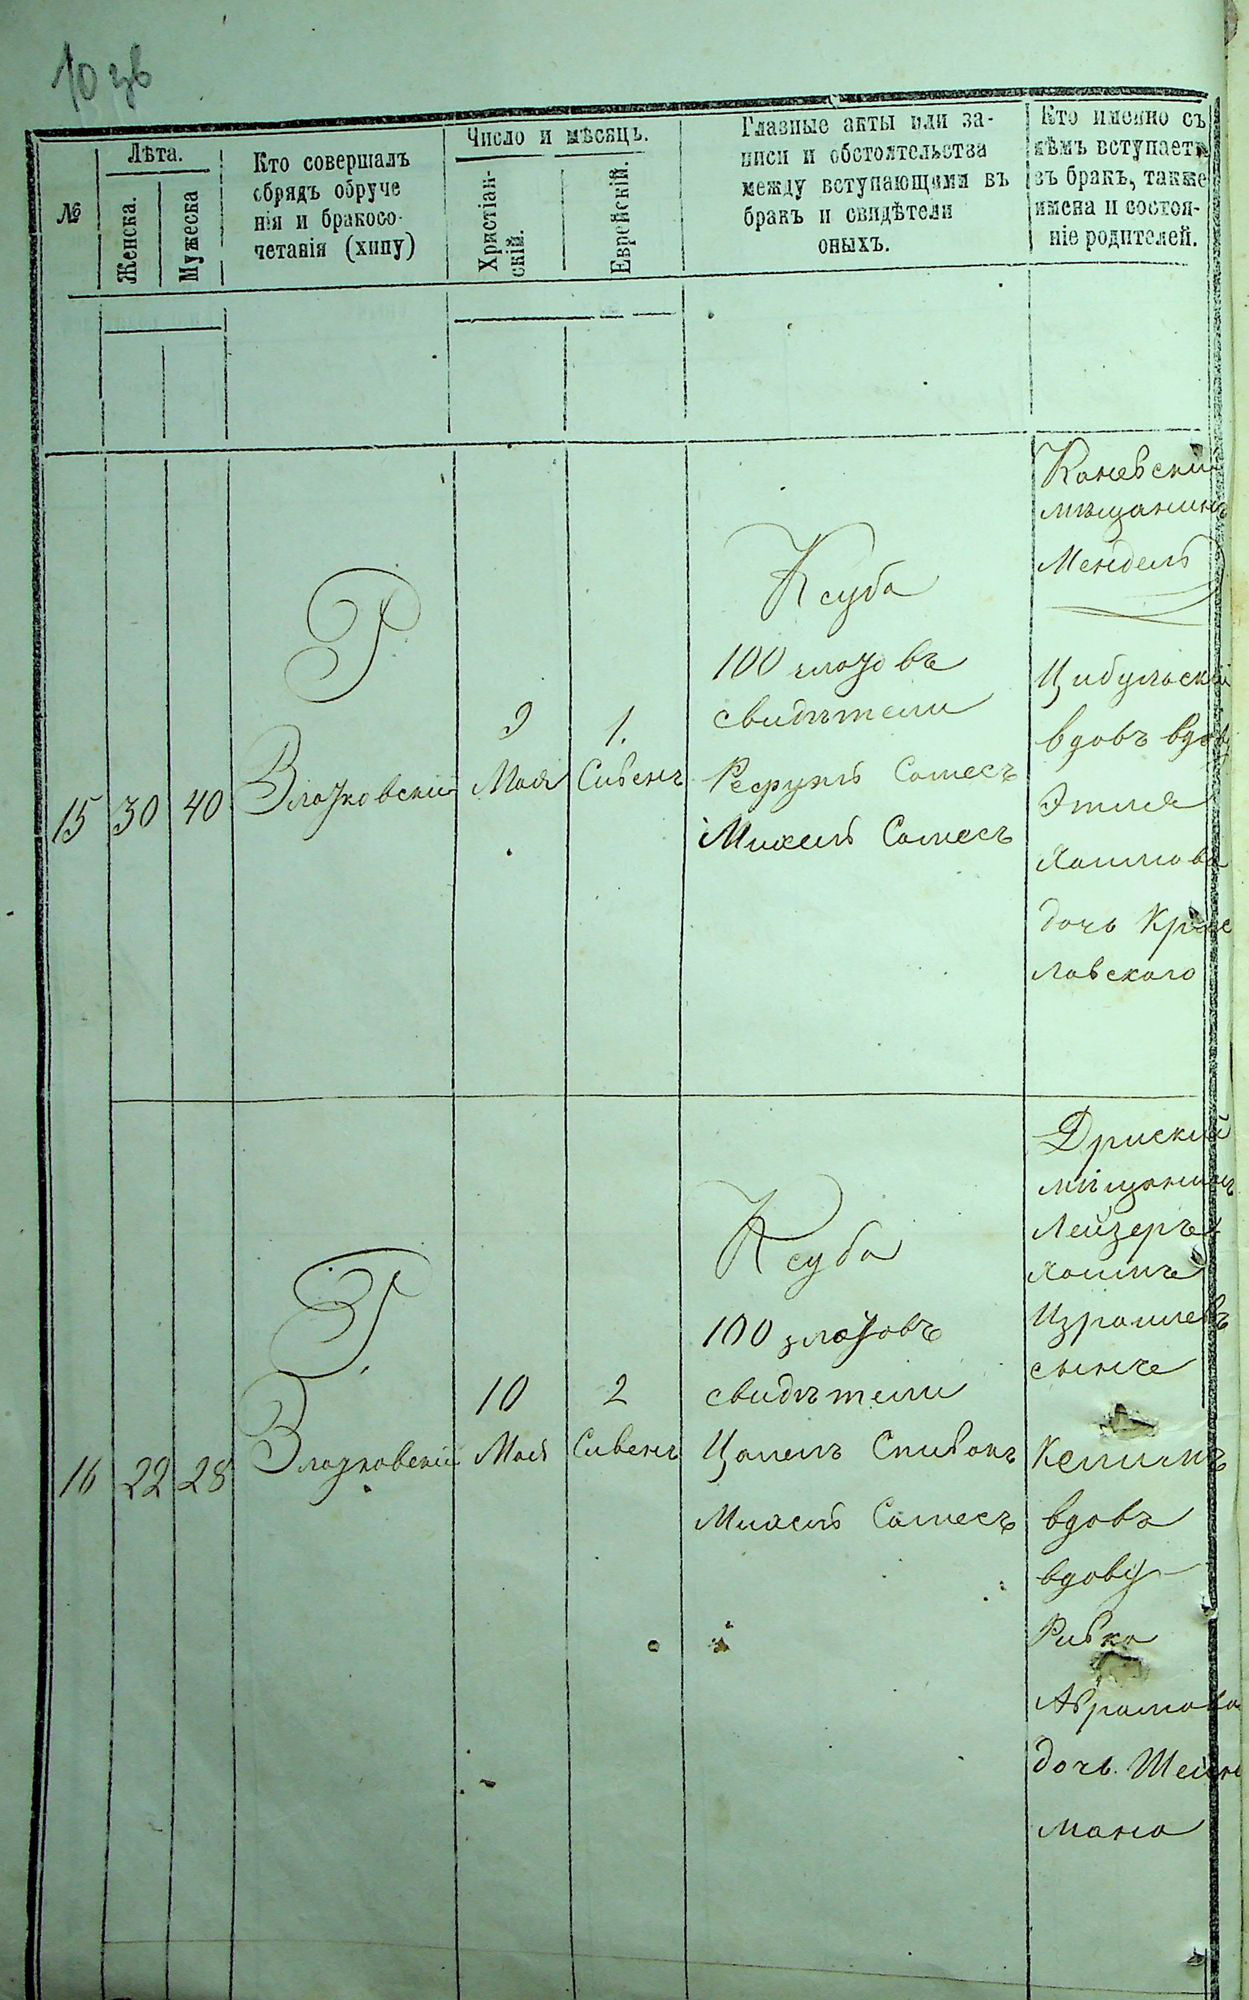 10 зв
№
Лѣта.
Женска.
Мужеска
Кто совершалъ
обрядъ обруче
нія и бракосо-
четанія (хипу)
Число и мѣсяцъ.
Христіан-
скій.
Еврейскій.
Главные акты или за-
писи и обстоятельства
между вступающими въ
бракъ и свидѣтели
оныхъ.
Кто именно съ
кѣмъ вступаетъ
въ бракъ, также
имена и состоя-
ніе родителей.
15
30
40
Р
Злотковскій
9
Мая
1.
Сивенъ
Ксуба
100 злотовъ
свидѣтели
Сотесъ
Михель Сотесъ
Каневскій
мѣщанинъ
Мендель
Цибульскій
вдовъ вдову
Этля
Хаимова
дочь Крас
лавского
16
22
28
Р.
Злотковскій
10
Мая
2
Сивенъ
Ксуба
100 злотовъ
свидѣтели
Цалель Спивакъ
Михель Сотесъ
мѣщанинъ
Лейзеръ
Хаимъ
Израилевъ
сынъ
вдовъ
вдову
Ривка
Абрамова
дочь Шейн
мана